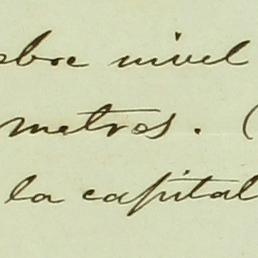 sobre nivel
metros. (
la capital